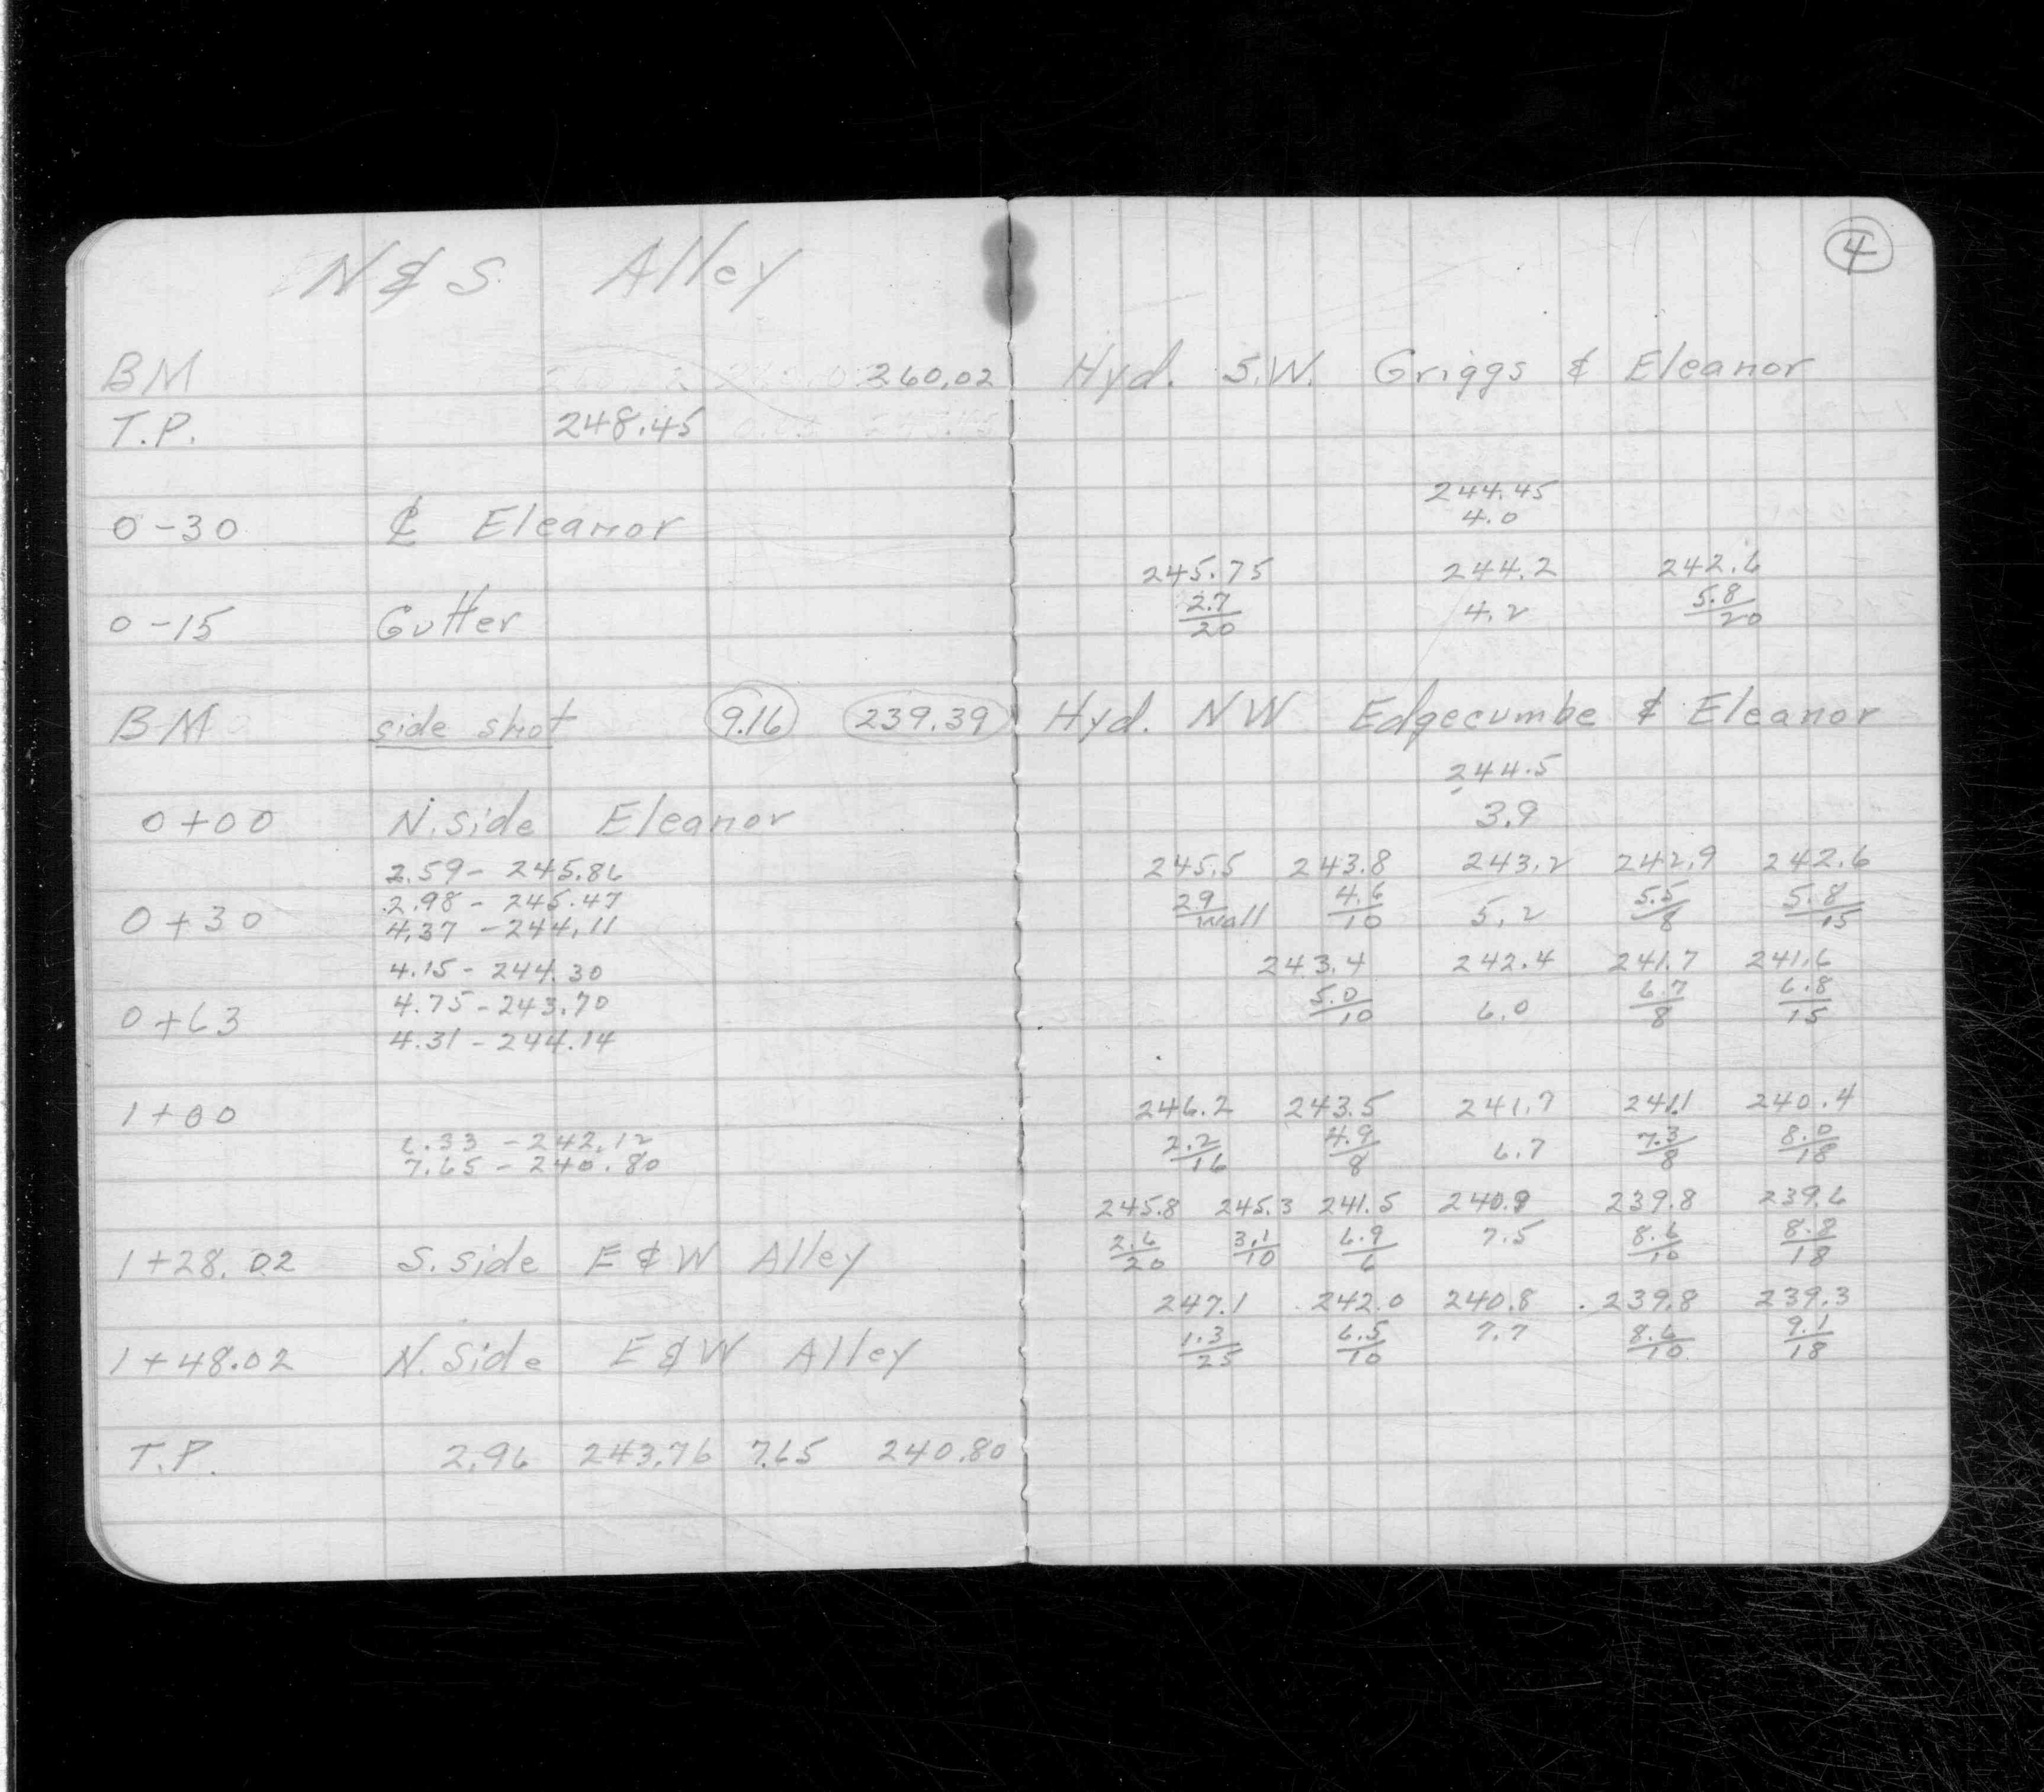 N & S. Alley
4
BM 260.02 Hyd. S.W. Griggs & Eleanor
T.P. 248.45
244.45
0-30 ℄ Eleanor 4.0
245.75 244.2 242.6
0-15 Gutter 2.7/20 4.2 5.8/20
BM side shot 9.16 239.39 Hyd. NW Edgecumbe & Eleanor
244.5
0+00 N. side Eleanor 3.9
2.59 - 245.86 245.5 243.8 243.2 242.9 242.6
2.98 - 245.47
0+30 2.9/wall 4.6/10 5.2 5.5/8 5.8/15
4.37 - 244.11
4.15 - 244.30 243.4 242.4 241.7 241.6
4.75 - 243.70
0+63 5.0/10 6.0 6.7/8 6.8/15
4.31 - 244.14
1+00 246.2 243.5 241.7 241.1 240.4
6.33 - 242.12 2.2/16 4.9/8 6.7 7.3/8 8.0/18
7.65 - 240.80
245.8 245.3 241.5 240.9 239.8 239.6
1+28.02 S. side E & W Alley 2.6/20 3.1/10 6.9/6 7.5 8.6/10 8.8/18
247.1 242.0 240.8 239.8 239.3
1+48.02 N. Side E & W Alley 1.3/25 6.5/10 7.7 8.6/10 9.1/18
T.P. 2.96 243.76 7.65 240.80